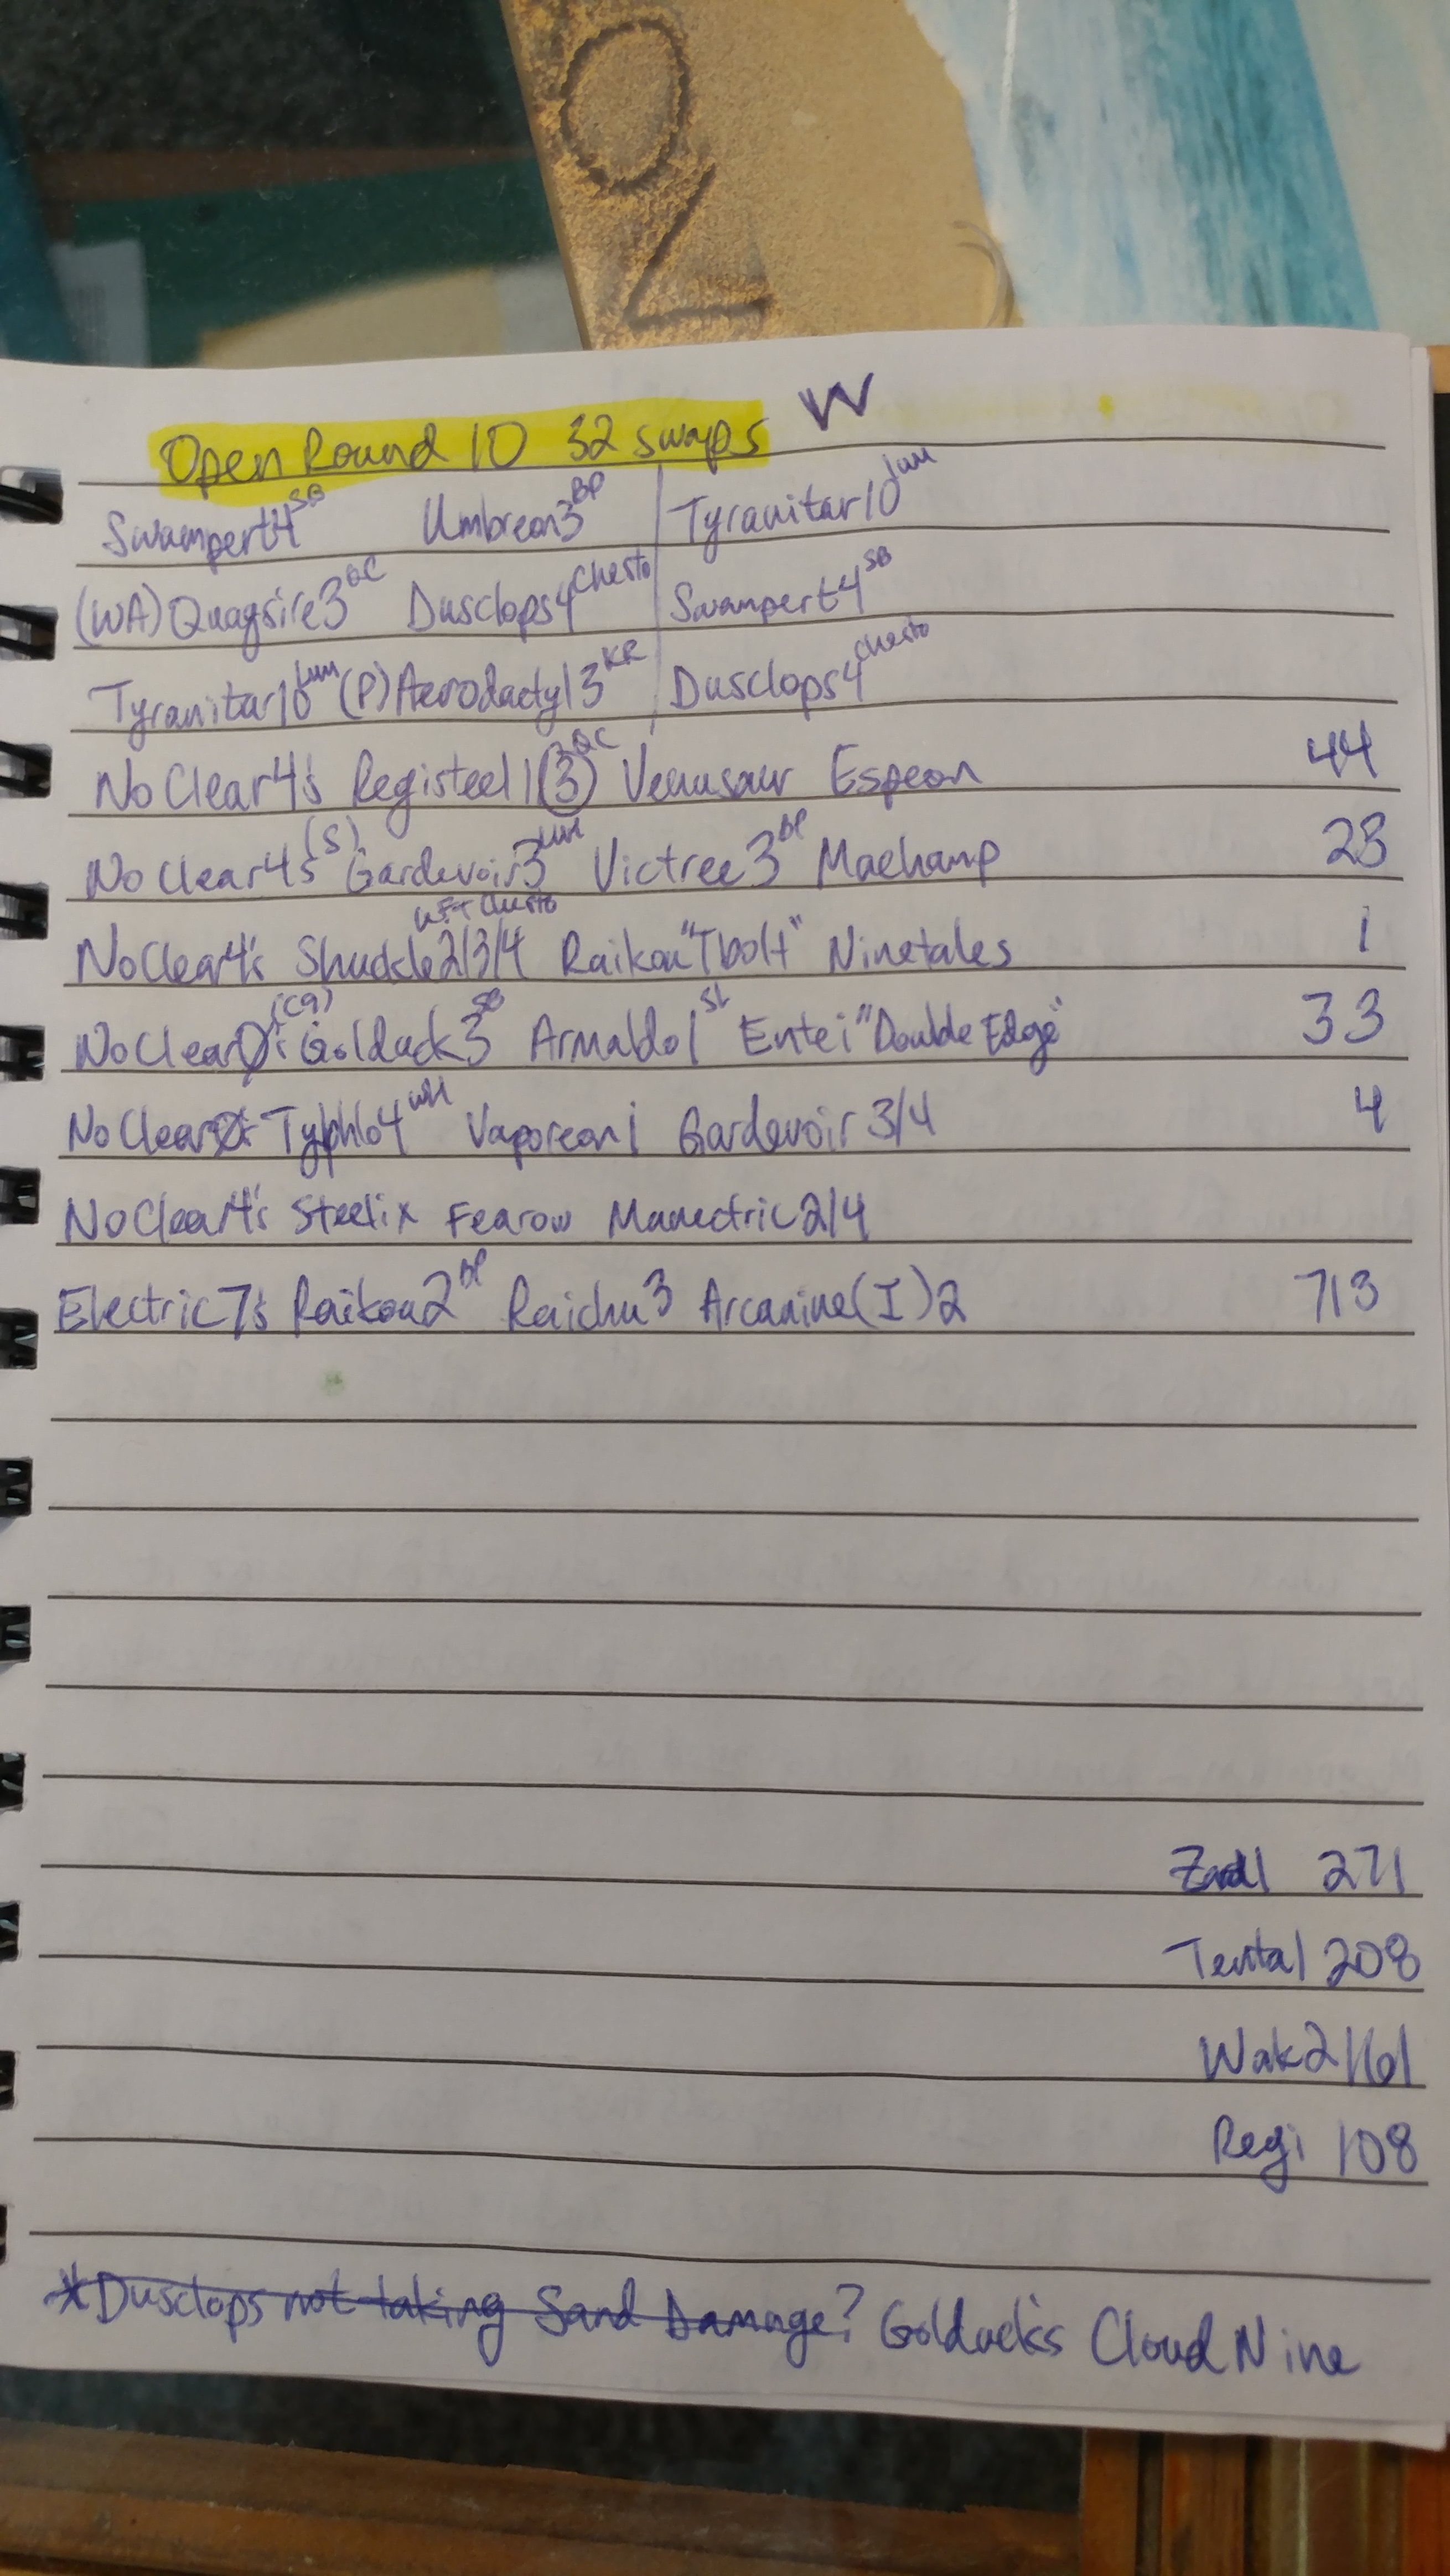 Open Round 10 32 swaps W
Swampert4 SB Umbreon3 BP Tyranitar10 Lum
(WA)Quagsire3 QC Dusclops4 Chesto Swampert4 SB
Tyranitar10 Lum (P)Aerodactyl3 KR Dusclops4 Chesto
No Clear4's Registeel1(3) QC Venusaur Espeon 44
No Clear4s (S)Gardevoir3 Lum Victree3 BP Machamp 23
No Clear4's Shuckle2/3/4 Chesto Raikou "Tbolt" Ninetales 1
No Clear 's (C9)Golduck3 SB Armaldo1 SL Entei "Double Edge" 33
No Clear Typhlo4 WH Vaporeon1 Gardevoir 3/4 4
No Clear4's Steelix Fearow Manectric2/4
Electric7's Raikou2 BP Raichu3 Arcanine(I)2 713
Zard1 271
Tenta1 208
Wak2 161
Regi 108
*Dusclops not taking Sand Damage? Golduck's Cloud Nine